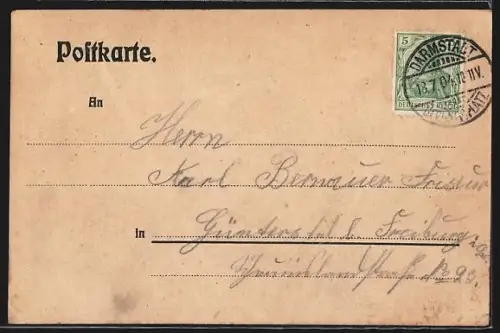 Postkarte.
5
DEUTSCHES REICH
DARMSTADT
13.7.04.10-11V.
An
Herrn
Karl Bernauer Friseur
in Günterstal b. Freiburg i/
No 23.